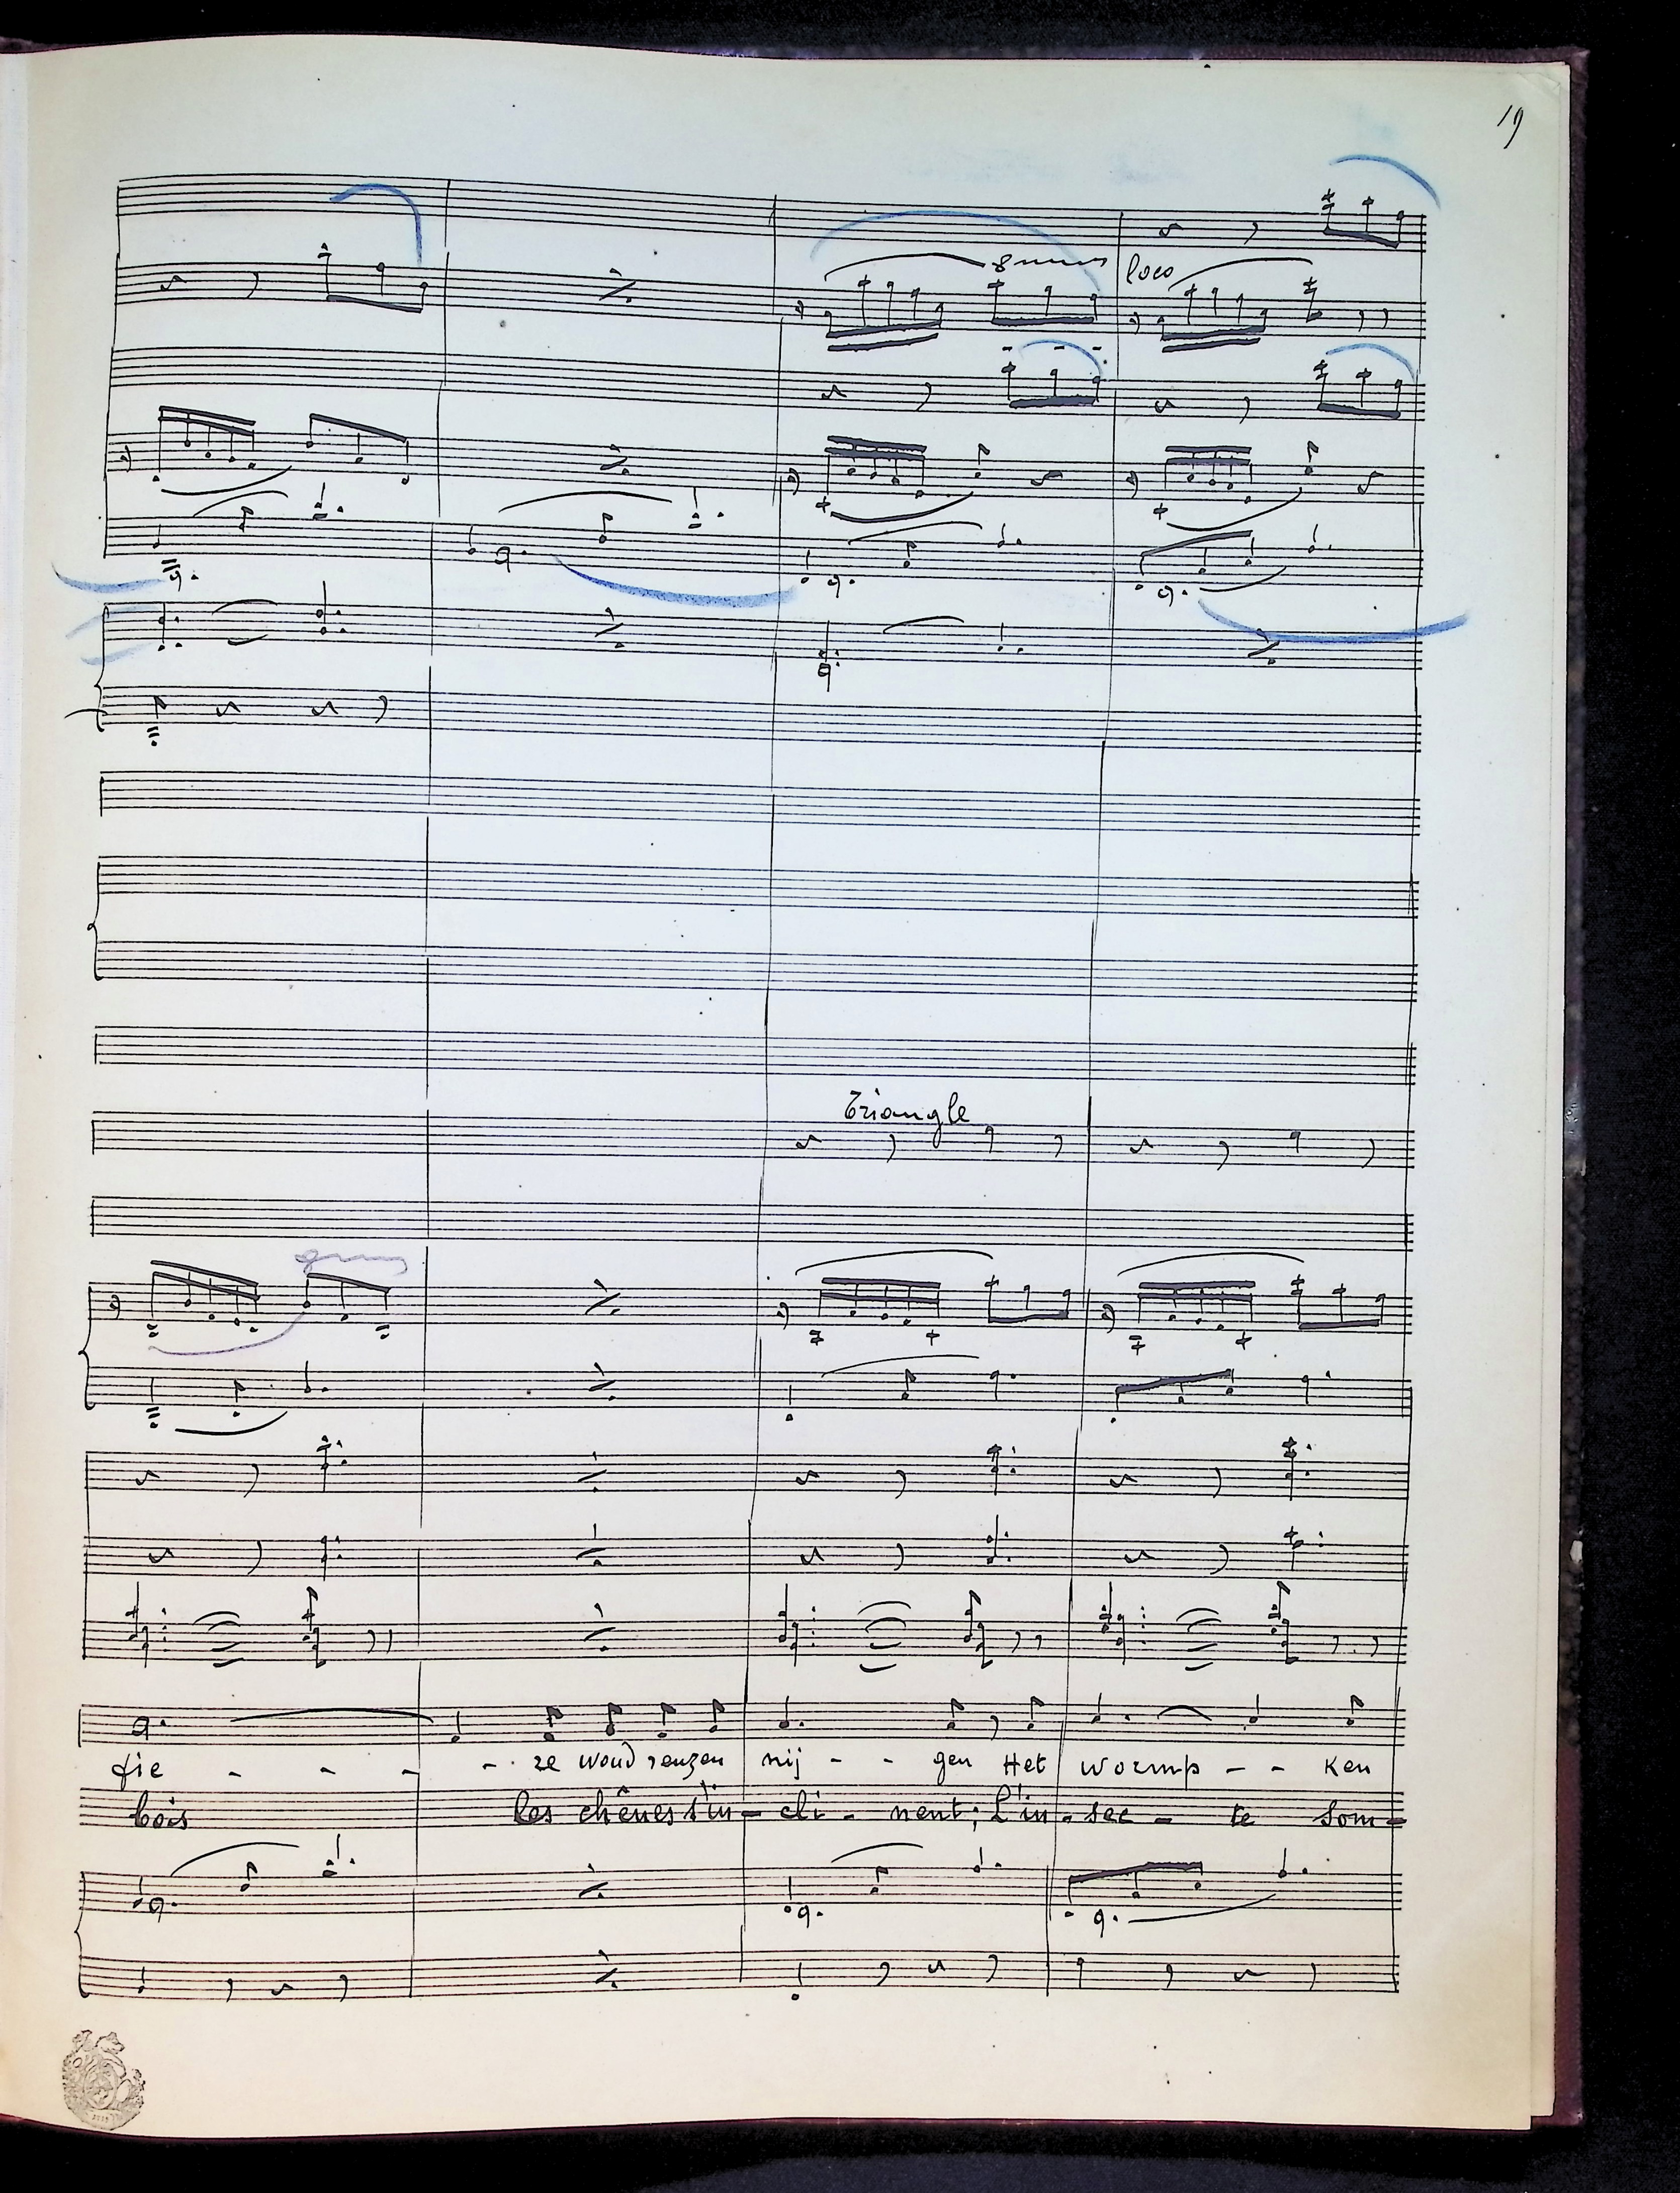 19
8
loco
Triangle
8
fie - - - - ze woud reuzen nij - - gen Het wormp - - ken
bois les chênes s'in - cli - nent; L'in - sec - te som -